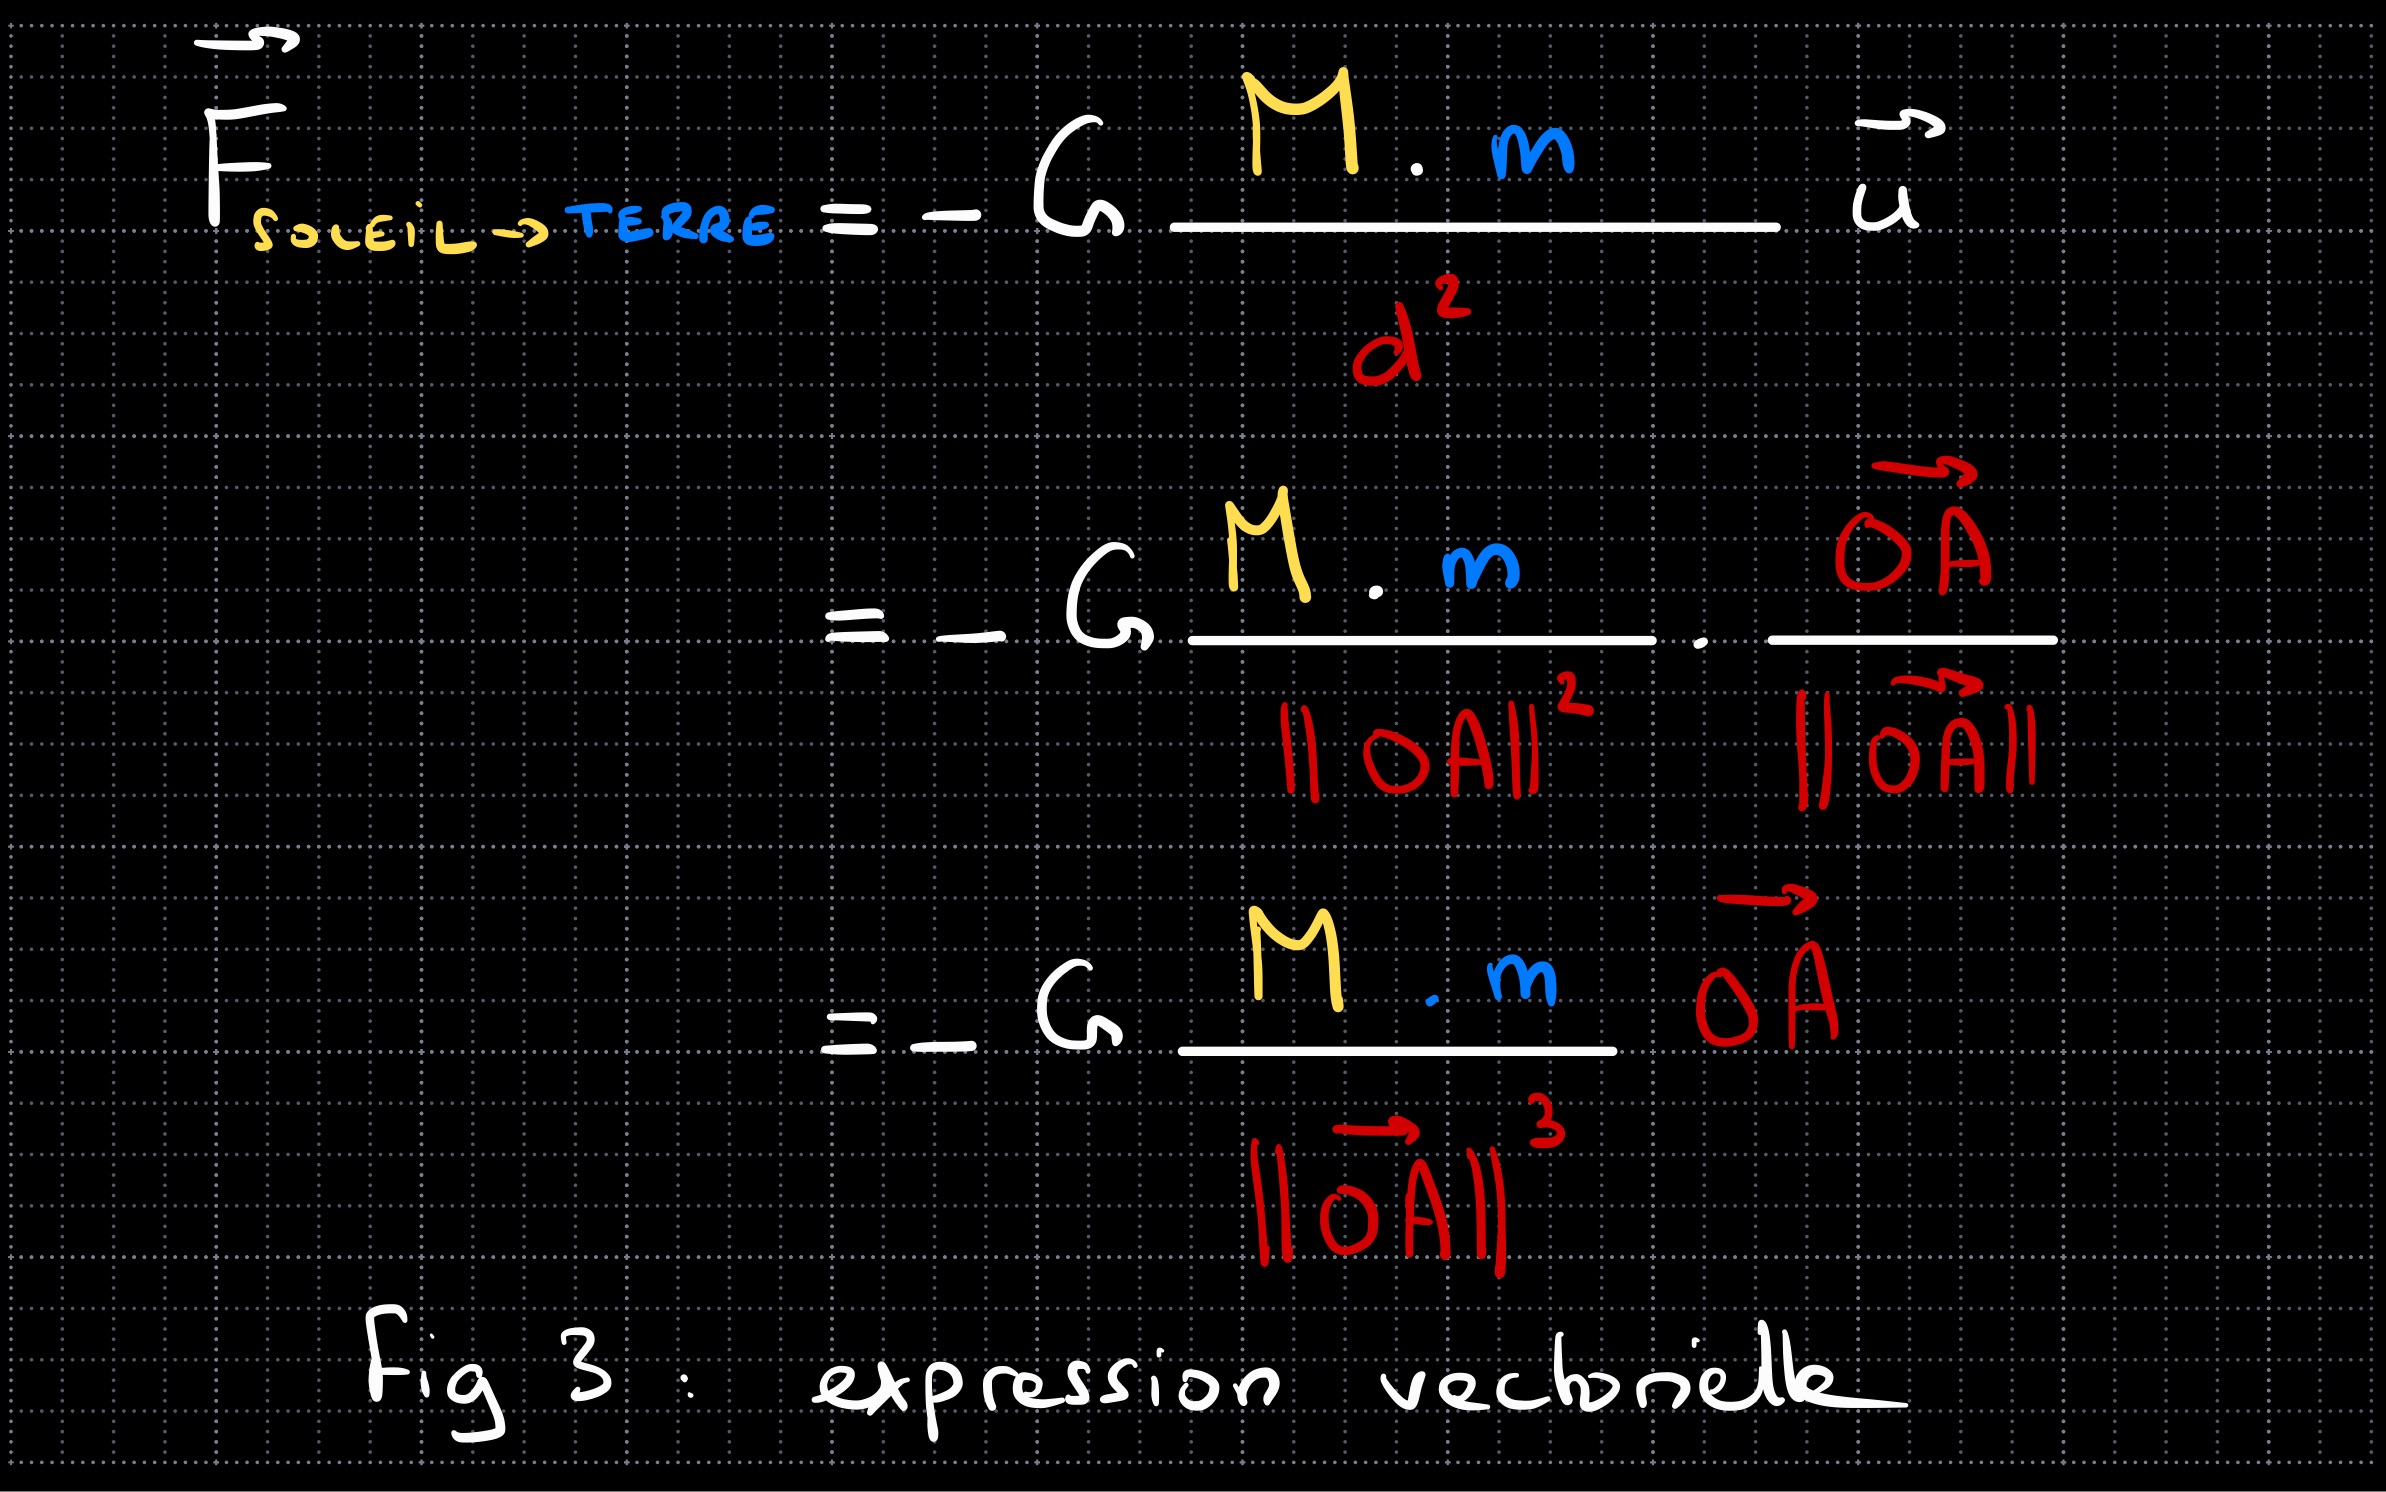 $\vec{F}_{SOLEiL \to TERRE} = - G \frac{M . m}{d^2} \vec{u}$
$= - G \frac{M . m}{\| OA \|^2} . \frac{\vec{OA}}{\| \vec{OA} \|}$
$= - G \frac{M . m}{\| \vec{OA} \|^3} \vec{OA}$
Fig 3 : expression vectorielle